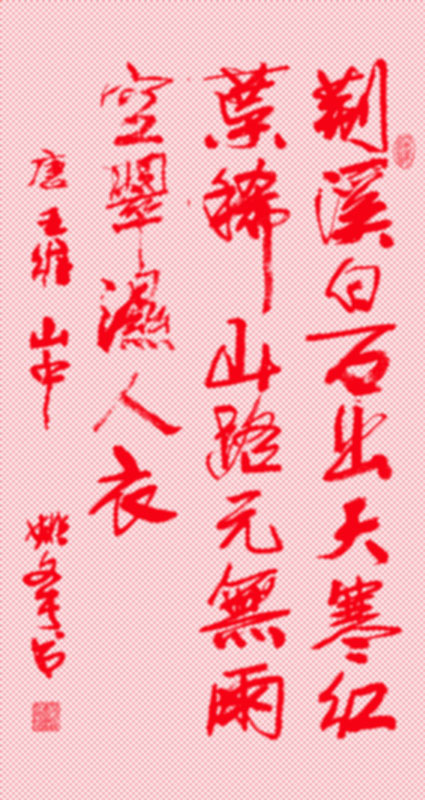 荆溪白石出天寒紅
葉稀山路元無雨
空翠濕人衣
唐王維山中